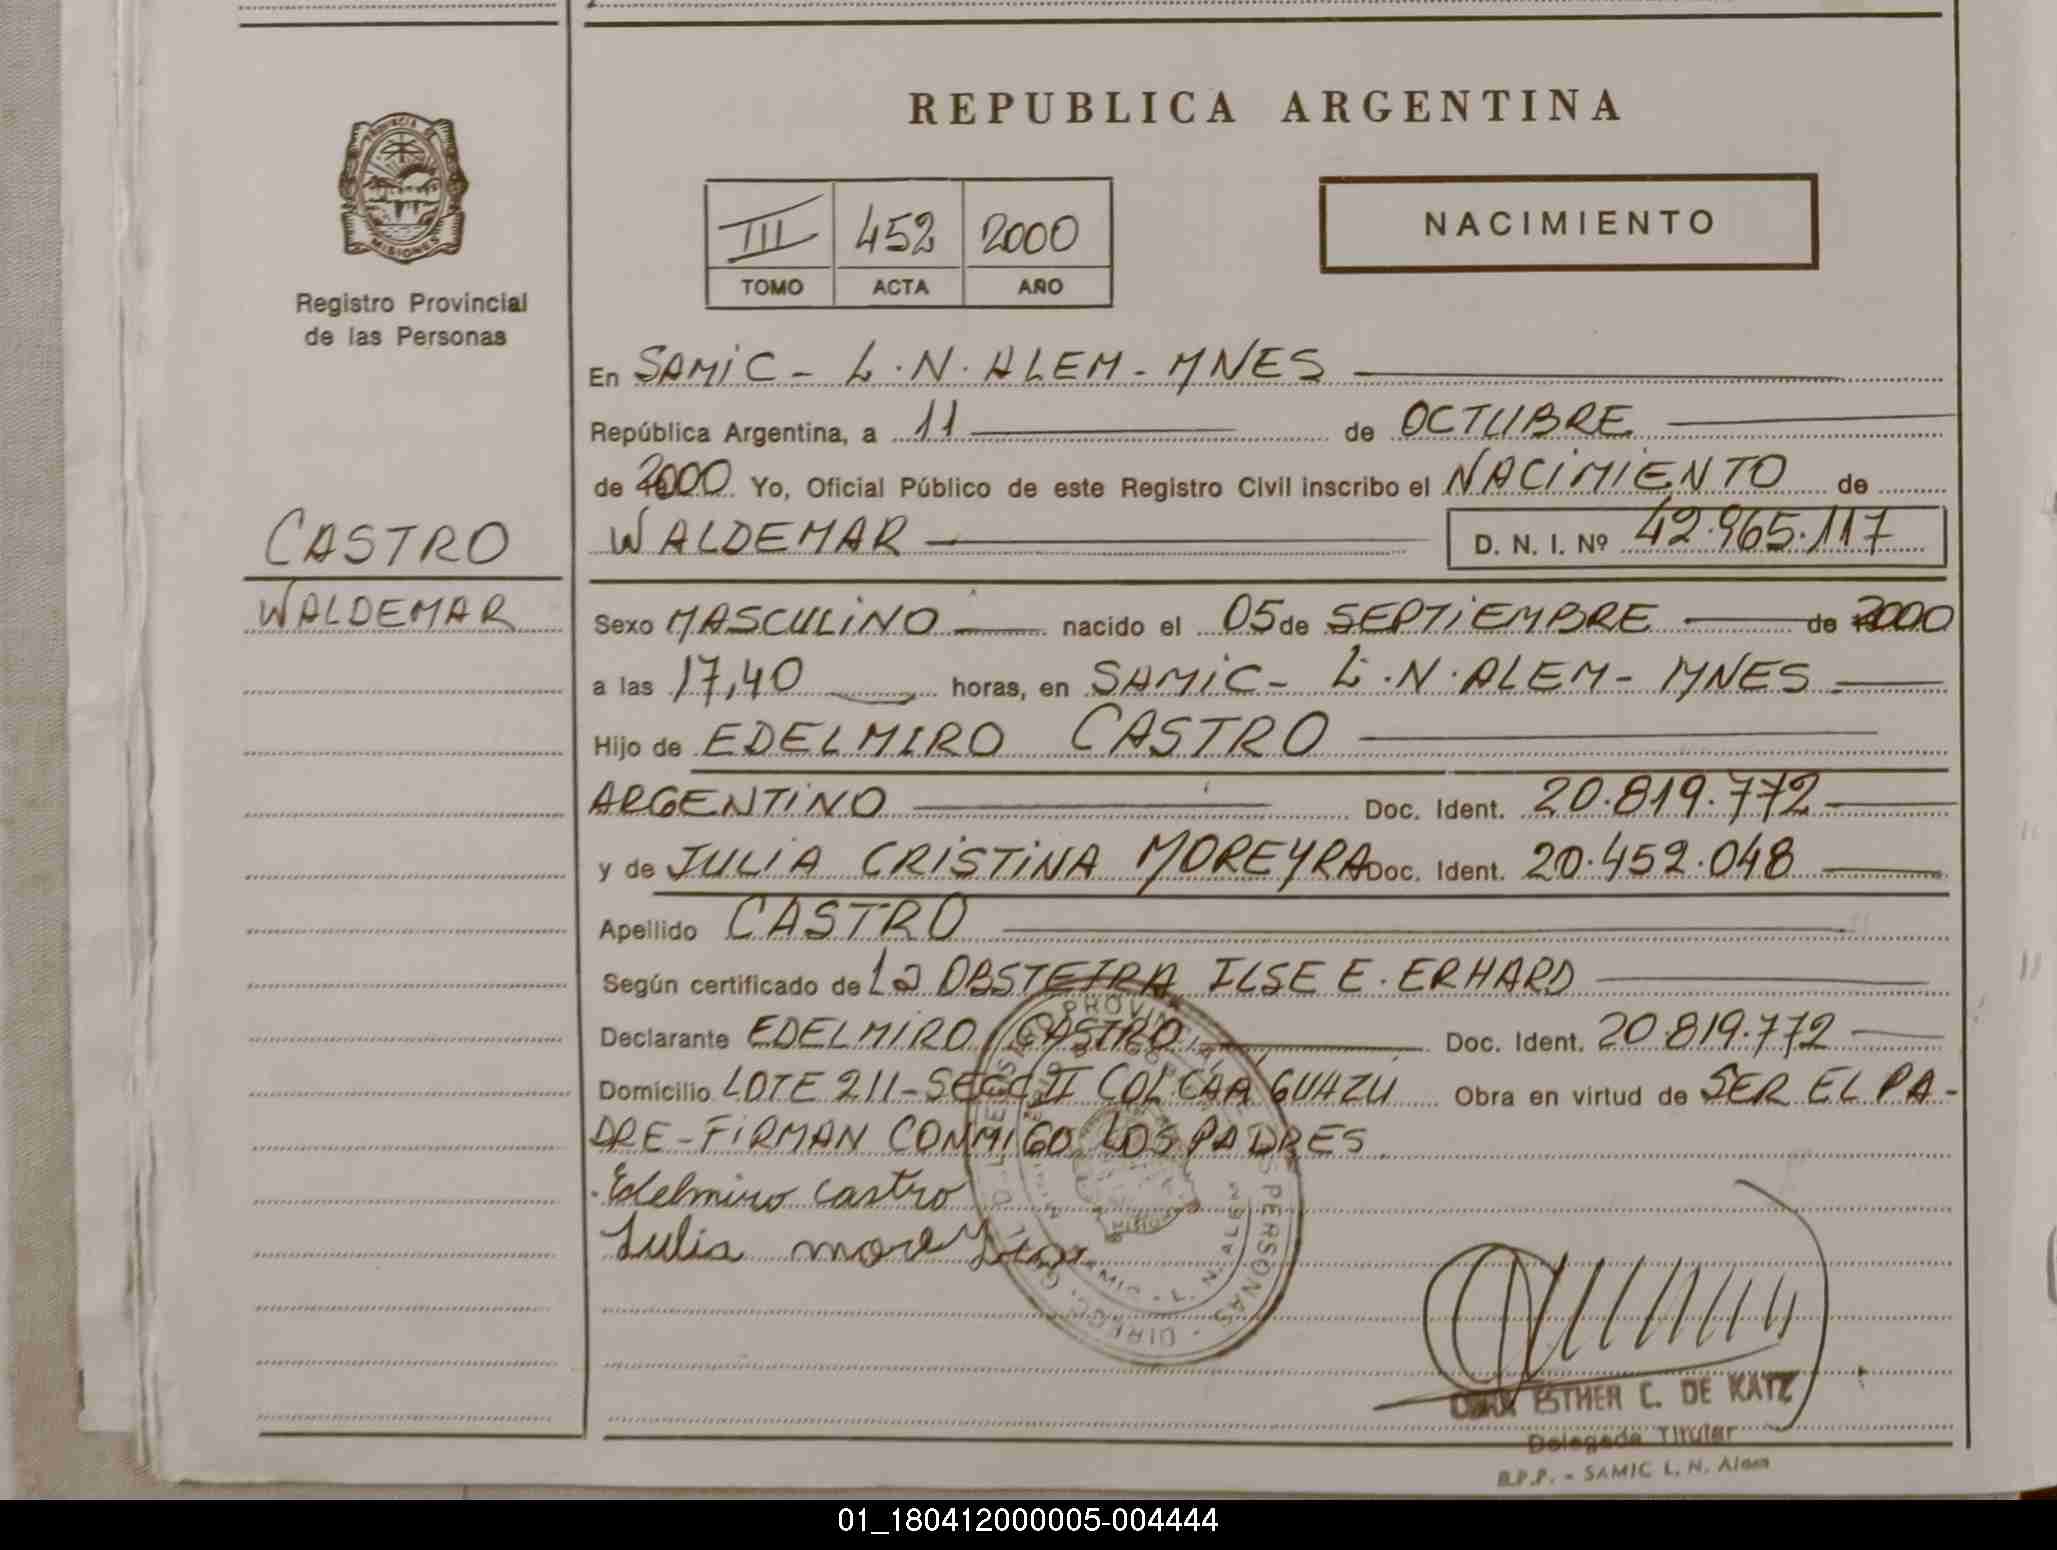 REPUBLICA ARGENTINA
PROVINCIA DE MISIONES
Registro Provincial
de las Personas
III 452 2000
TOMO ACTA AÑO
NACIMIENTO
En SAMIC - L.N.ALEM - MNES
República Argentina, a 11 de OCTUBRE
de 2000 Yo, Oficial Público de este Registro Civil inscribo el NACIMIENTO de
WALDEMAR D. N. I. Nº 42.965.117
CASTRO
WALDEMAR
Sexo MASCULINO nacido el 05 de SEPTIEMBRE de 2000
a las 17,40 horas, en SAMIC - L.N.ALEM - MNES
Hijo de EDELMIRO CASTRO
ARGENTINO Doc. Ident. 20.819.772
y de JULIA CRISTINA MOREYRA Doc. Ident. 20.452.048
Apellido CASTRO
Según certificado de La OBSTETRA ILSE E. ERHARD
Declarante EDELMIRO CASTRO Doc. Ident. 20.819.772
Domicilio LOTE 211 - SECC II COL CAA GUAZU Obra en virtud de SER EL PA-
DRE - FIRMAN CONMIGO LOS PADRES.
Edelmiro Castro
Julia moreyra
ESTHER C. DE KATZ
Delegada Titular
B.P.P. - SAMIC L. N. Alem
01_180412000005-004444